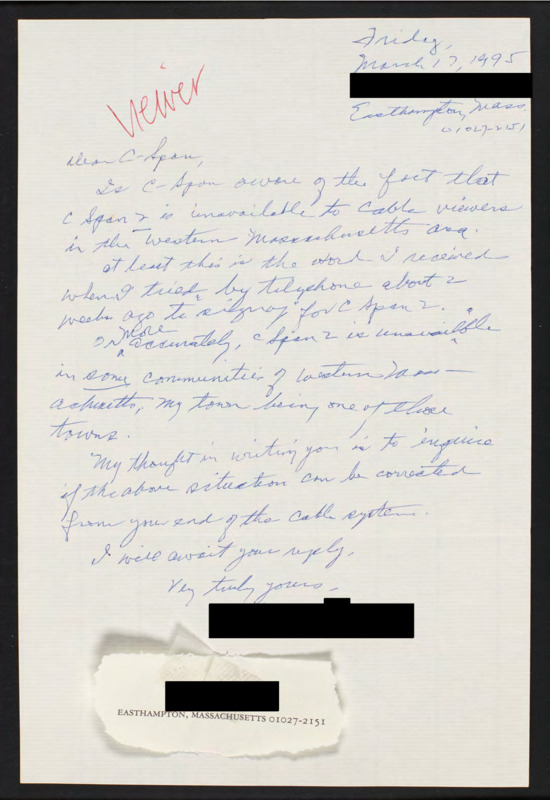 Friday,
March 17, 1995
Easthampton, Mass.
01027-2151
viewer
Dear C-Span,
Is C-Span aware of the fact that
C Span 2 is unavailable to cable viewers
in the Western Massachusetts area.
At least this is the word I received
when I tried, by telephone about 2
weeks ago to "sign up" for C Span 2.
Or more accurately, C Span 2 is unavailable
in some communities of Western Mass-
achusetts, my town being one of those
towns.
My thought in writing you is to inquire
if the above situation can be corrected
from your end of the cable system.
I will await your reply.
Very truly yours-
EASTHAMPTON, MASSACHUSETTS 01027-2151